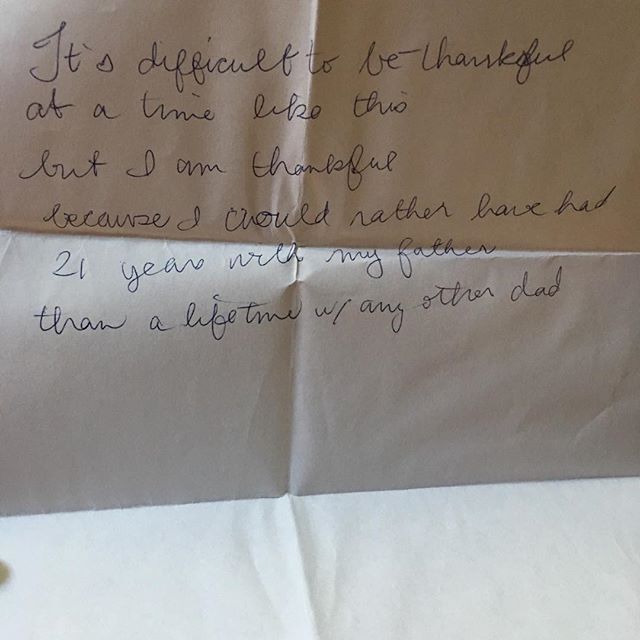 It's difficult to be thankful
at a time like this
but I am thankful
because I would rather have had
21 years with my father
than a lifetime w/ any other dad